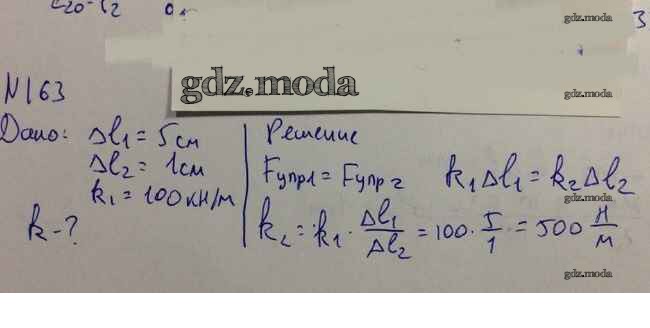 gdz.moda
3
gdz.moda
gdz.moda
N163
Дано: Δl₁ = 5см
Δl₂ = 1см
k₁ = 100кН/м
k-?
Решение
Fупр1 = Fупр2 k₁Δl₁ = k₂Δl₂
k₂ = k₁ · Δl₁/Δl₂ = 100 · 5/1 = 500 Н/м
gdz.moda